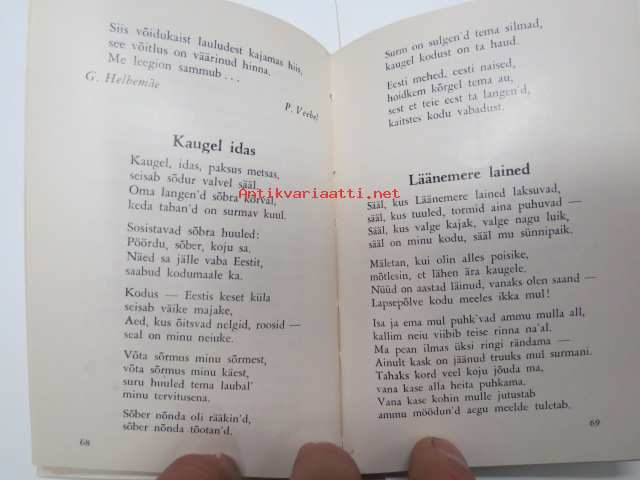 Siis võidukaist lauludest kajamas hiis,
see võitlus on väärinud hinna.
Me leegion sammub . . .
G. Helbemäe
P. Veebel
Kaugel idas
Kaugel, idas, paksus metsas,
seisab sõdur valvel sääl.
Oma langen'd sõbra kõrval,
keda taban'd on surmav kuul.
Sosistavad sõbra huuled:
Pöördu, sõber, koju sa.
Näed sa jälle vaba Eestit,
saabud kodumaale ka.
Kodus — Eestis keset küla
seisab väike majake,
Aed, kus õitsvad nelgid, roosid —
seal on minu neiuke.
Võta sõrmus minu sõrmest,
võta sõrmus minu käest,
suru huuled tema laubal'
minu tervitusena.
Sõber nõnda oli rääkin'd,
sõber nõnda tõotan'd.
68
Surm on sulgen'd tema silmad,
kaugel kodust on ta haud.
Eesti mehed, eesti naised,
hoidkem kõrgel tema au,
sest et teie eest ta langen'd,
kaitstes kodu vabadust.
Läänemere lained
Sääl, kus Läänemere lained laksuvad,
sääl, kus tuuled, tormid aina puhuvad —
Sääl, kus valge kajak, valge nagu luik,
sääl on minu kodu, sääl mu sünnipaik.
Mäletan, kui olin alles poisike,
mõtlesin, et lähen ära kaugele.
Nüüd on aastad läinud, vanaks olen saand —
Lapsepõlve kodu meeles ikka mul!
Isa ja ema mul puhk'vad ammu mulla all,
kallim neiu viibib teise rinna na'al.
Ma pean ilmas üksi ringi rändama —
Ainult kask on jäänud truuks mul surmani.
Tahaks kord veel koju jõuda ma,
vana kase alla heita puhkama.
Vana kase kohin mulle jutustab
ammu möödun'd aegu meelde tuletab.
69
Antikvariaatti.net